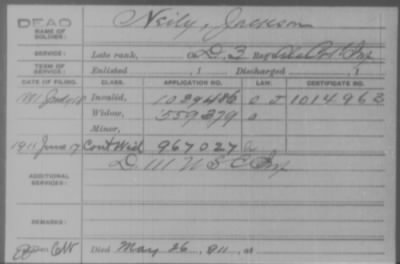 DEAD
NAME OF SOLDIER: Neily, Jackson
SERVICE: Late rank, Co. D, 3 Reg
TERM OF SERVICE: Enlisted , 1 Discharged , 1
DATE OF FILING. CLASS. APPLICATION NO. LAW. CERTIFICATE NO.
Invalid, 1039486 1014963
Widow, 559379 a
Minor,
1911 June 17 Cont Wid 967027 a
ADDITIONAL SERVICES: D. 111 U S C Inf
REMARKS:
Died May 26, 911, at